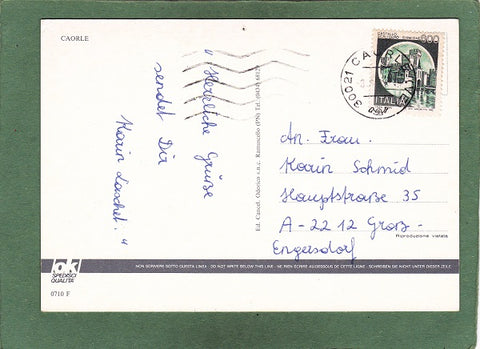 CAORLE
" Herzliche Grüße
sendet Dir
Karin Laschet. "
Ed. Cancel. Odorico s.n.c. Ramuscello (PN) Tel. (0434)
600
ITALIA
30021 CAORLE (VE)
An. Frau.
Karin Schmid
Hauptstraße 35
A - 22 12 Groß -
Engersdorf
Riproduzione vietata
NON SCRIVERE SOTTO QUESTA LINEA - DO NOT WRITE BELOW THIS LINE - NE RIEN ECRIRE AU-DESSOUS DE CETTE LIGNE - SCHREIBEN SIE NICHT UNTER DIESER ZEILE
ok
SPEDISCI
QUALITÀ
0710 F